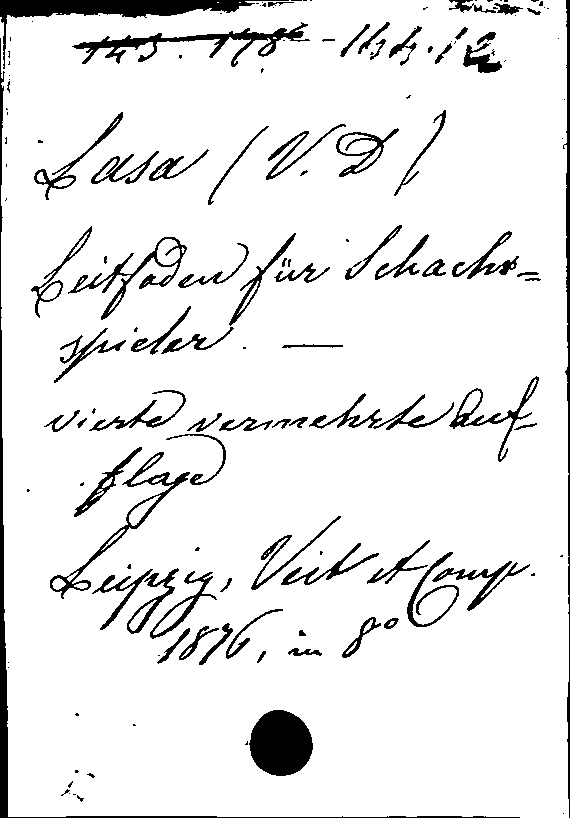 143. 178 - 
Lasa (V. D)
Leitfaden für Schachs=
spieler. —
vierte vermehrte Auf-
flage
Leipzig, Veit et Comp.
1876, in 8º